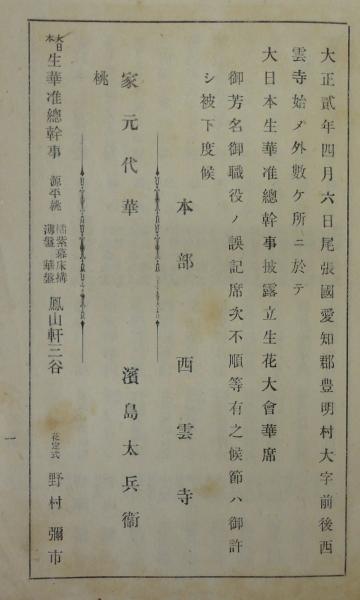 大正貳年四月六日尾張國愛知郡豊明村大字前後西
雲寺始メ外數ケ所ニ於テ
大日本生華准總幹事披露立生花大會華席
御芳名御職役ノ誤記席次不順等有之候節ハ御許
シ被下度候
本部 西雲寺
家元代華 濱島太兵衞
桃
大日本 生華准總幹事 源平桃 橘紫幕床構 薄盤 華盤 鳳山軒三谷 花定式 野村彌市
一